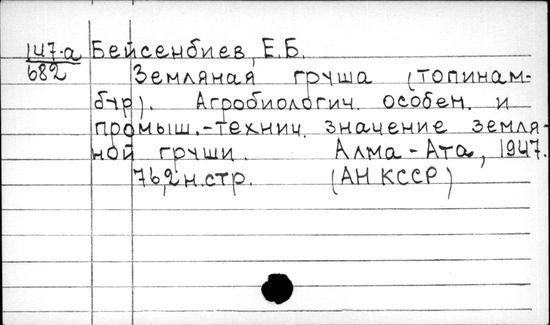 147-а Бейсенбиев, Е.Б.
682 Земляная груша (топинам-
бур). Агробиологич. особен. и
промыш.-технич. значение земля-
ной груши. Алма-Ата, 1947.
76,2н.стр. (АН КССР)